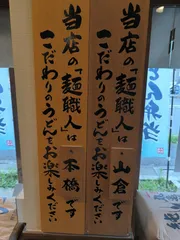 当店の「麺職人」は
山倉です
こだわりのうどんをお楽しみください
当店の「麺職人」は
本橋です
こだわりのうどんをお楽しみください